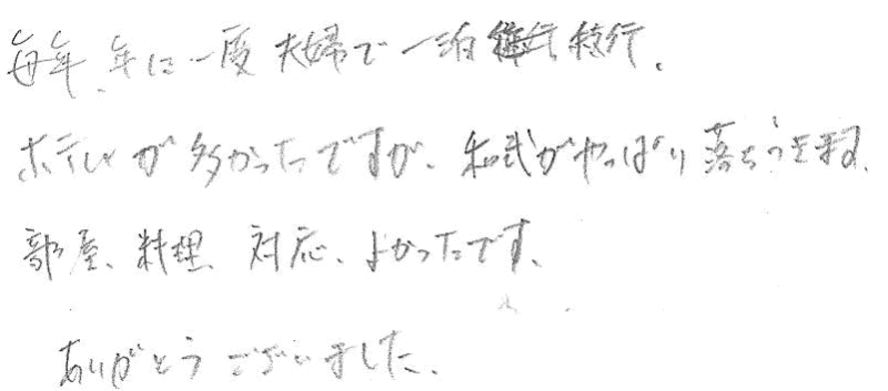 毎年、年に一度夫婦で一泊旅行。
ホテルが多かったですが、和式がやっぱり落ちつきます。
部屋、料理、対応、よかったです。
ありがとうございました。